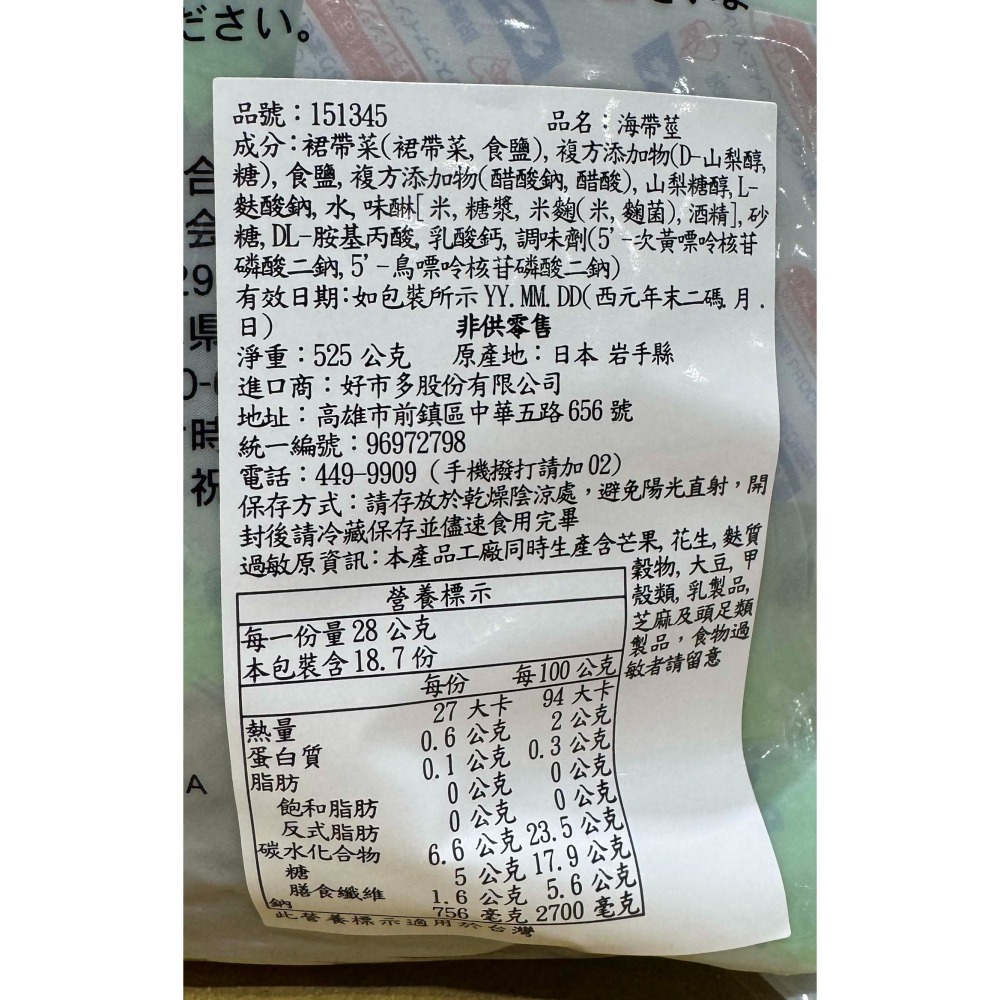 ださい。
品號：151345 品名：海帶莖
成分：裙帶菜(裙帶菜, 食鹽), 複方添加物(D-山梨醇,
糖), 食鹽, 複方添加物(醋酸鈉, 醋酸), 山梨糖醇, L-
麩酸鈉, 水, 味醂[米, 糖漿, 米麴(米, 麴菌), 酒精], 砂
糖, DL-胺基丙酸, 乳酸鈣, 調味劑(5’-次黃嘌呤核苷
磷酸二鈉, 5’-鳥嘌呤核苷磷酸二鈉)
有效日期：如包裝所示 YY. MM. DD(西元年末二碼. 月.
日) 非供零售
淨重：525 公克 原產地：日本 岩手縣
進口商：好市多股份有限公司
地址：高雄市前鎮區中華五路 656 號
統一編號：96972798
電話：449-9909 (手機撥打請加 02)
保存方式：請存放於乾燥陰涼處，避免陽光直射，開
封後請冷藏保存並儘速食用完畢
過敏原資訊：本產品工廠同時生產含芒果, 花生, 麩質
穀物, 大豆, 甲
殼類, 乳製品,
芝麻及頭足類
製品，食物過
敏者請留意
營養標示
每一份量 28 公克
本包裝含 18.7 份
每份 每 100 公克
熱量 27 大卡 94 大卡
蛋白質 0.6 公克 2 公克
脂肪 0.1 公克 0.3 公克
飽和脂肪 0 公克 0 公克
反式脂肪 0 公克 0 公克
碳水化合物 6.6 公克 23.5 公克
糖 5 公克 17.9 公克
膳食纖維 1.6 公克 5.6 公克
鈉 756 毫克 2700 毫克
此營養標示適用於台灣
合
会
29
県
時
祝
A